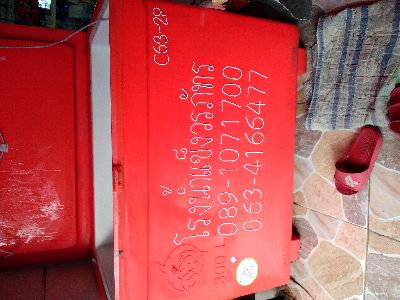 C63-28
โรงน้ำแข็งวรภัทร
300 L
089-1071700
063-4166477